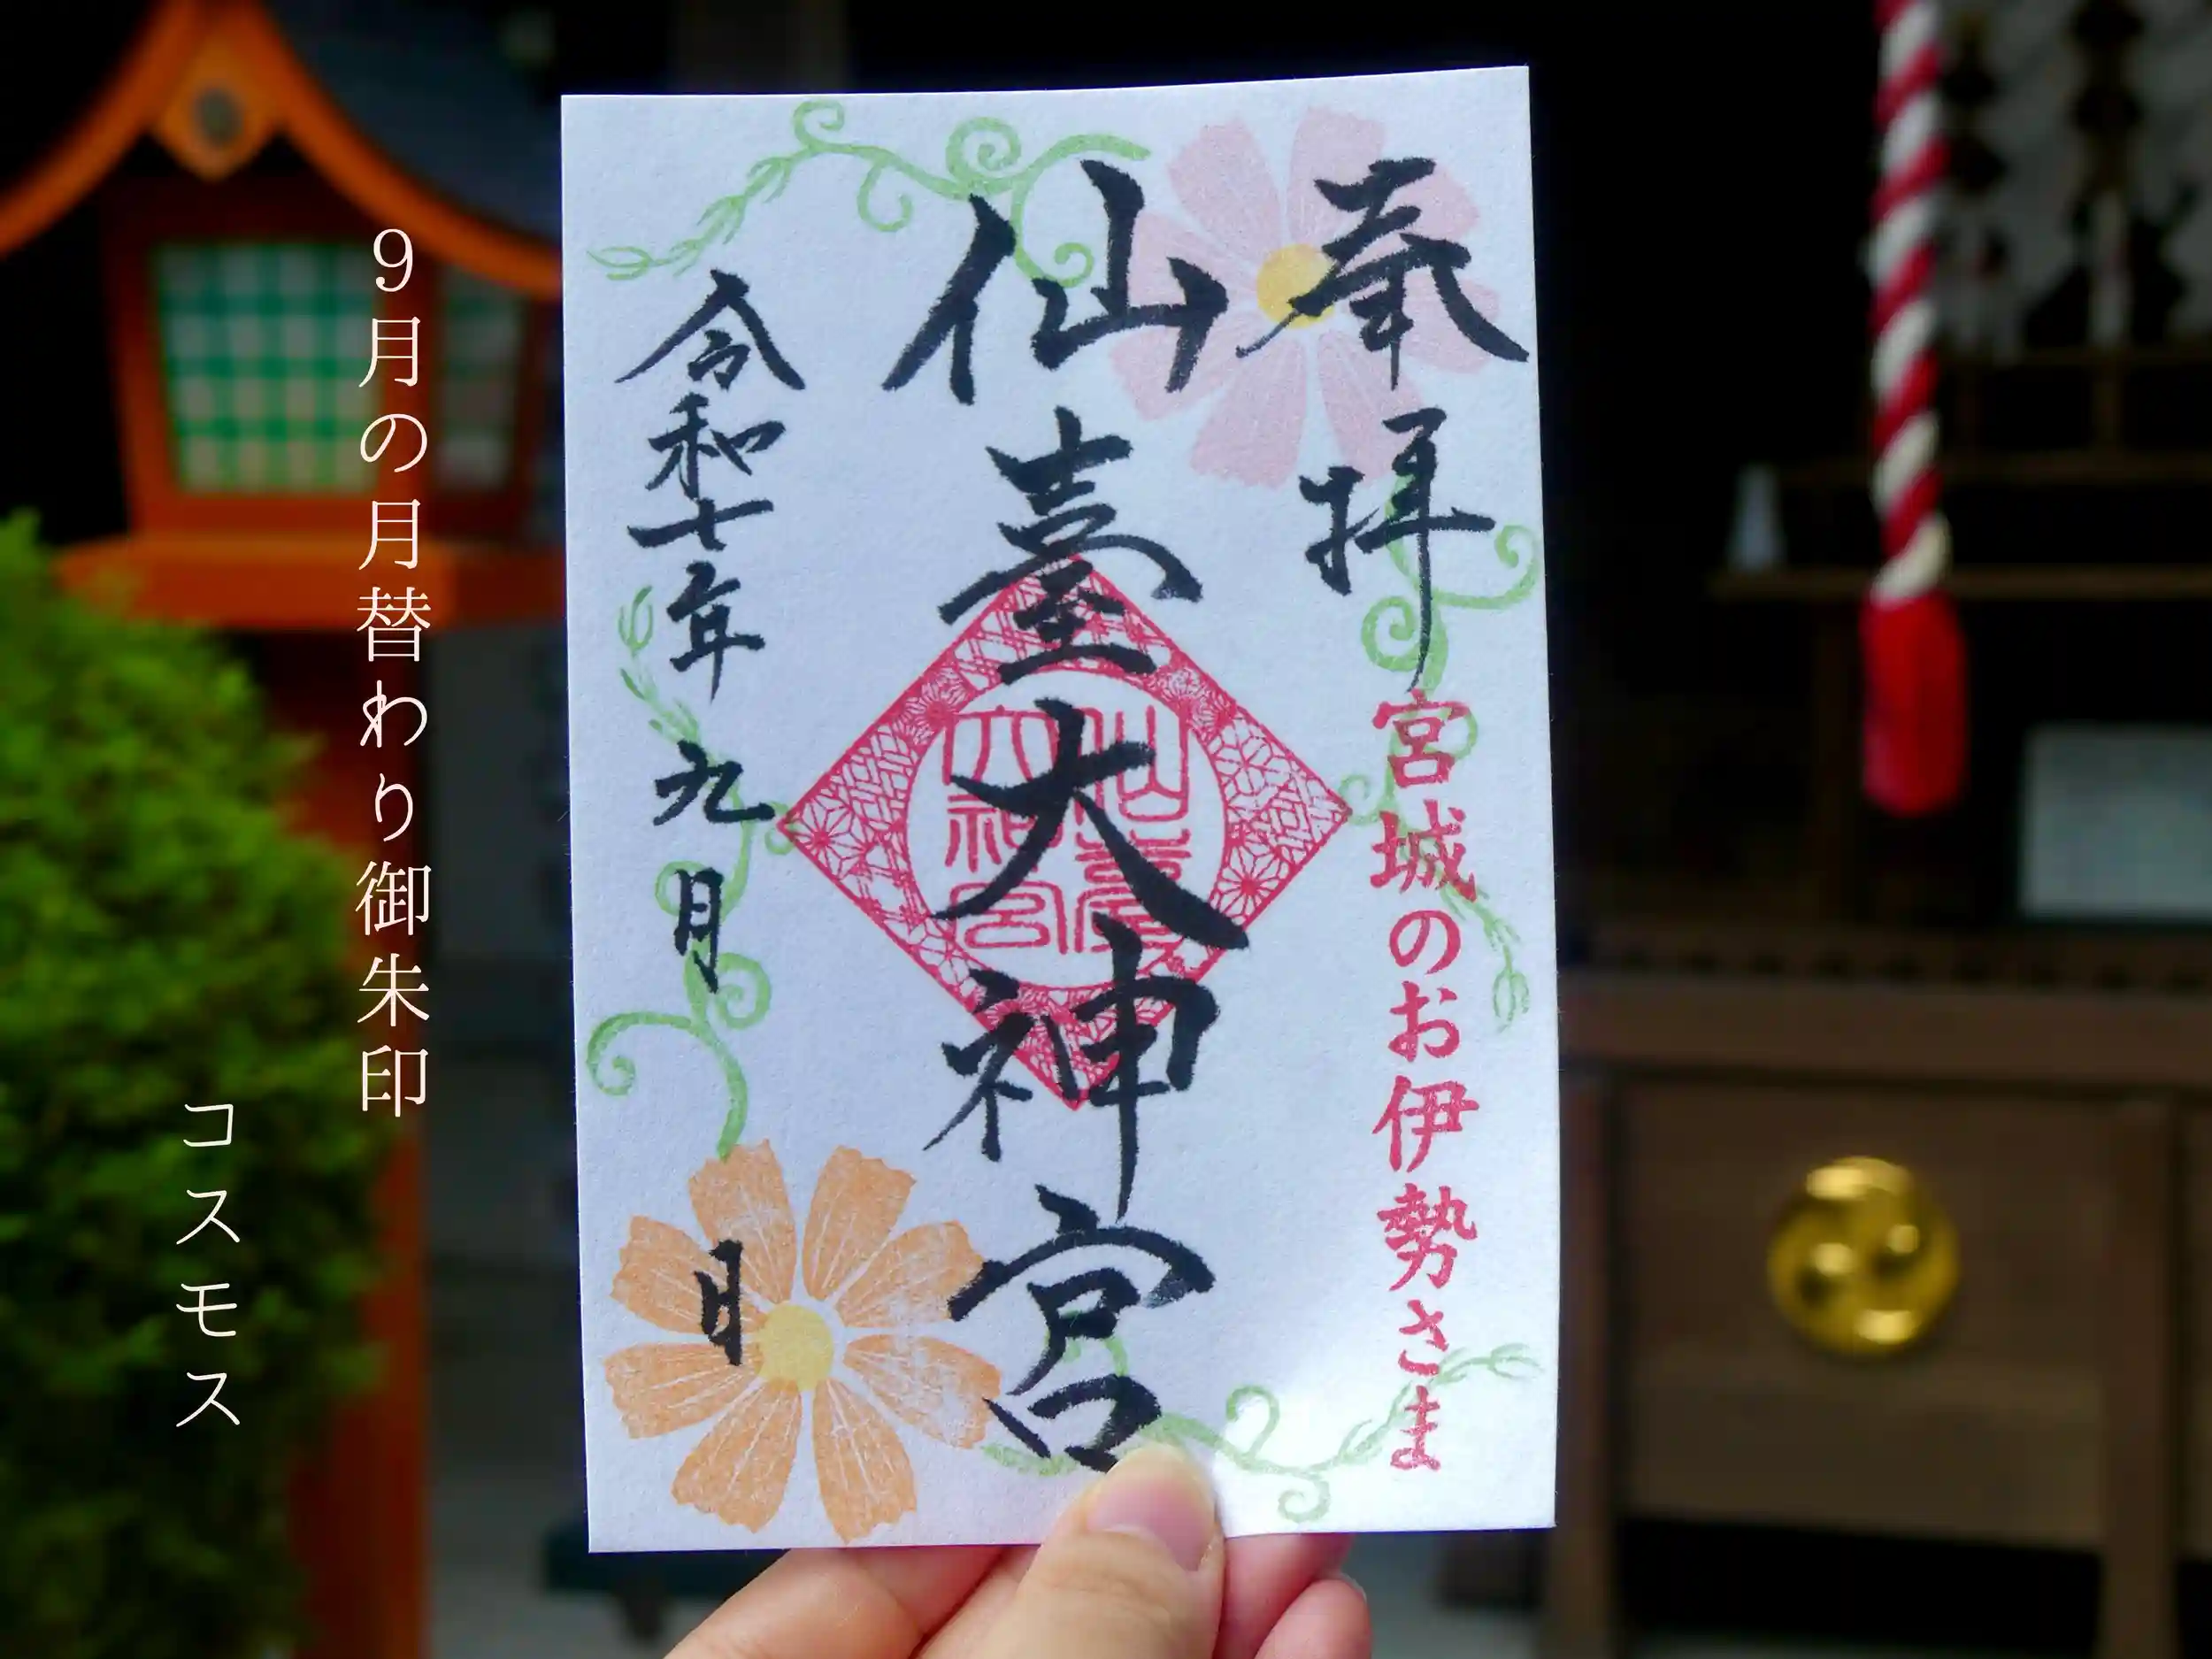 奉拝
宮城のお伊勢さま
仙臺大神宮
仙臺
大神宮
令和七年 九月 日
9月の月替わり御朱印
コスモス